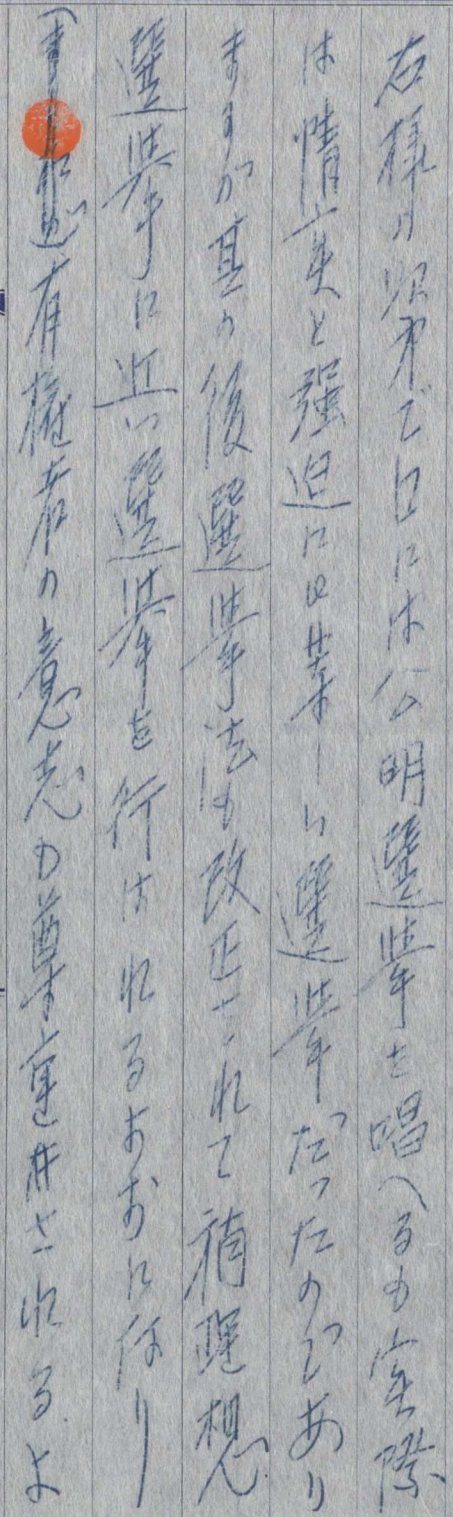 右様の次第で口には公明選挙を唱へるも実際
は情実と強迫による選挙だったのであり
ますが其の後選挙法も改正されて稍理想
選挙に近い選挙を行はれるよおになり
有権者の意志の尊重せされるよ